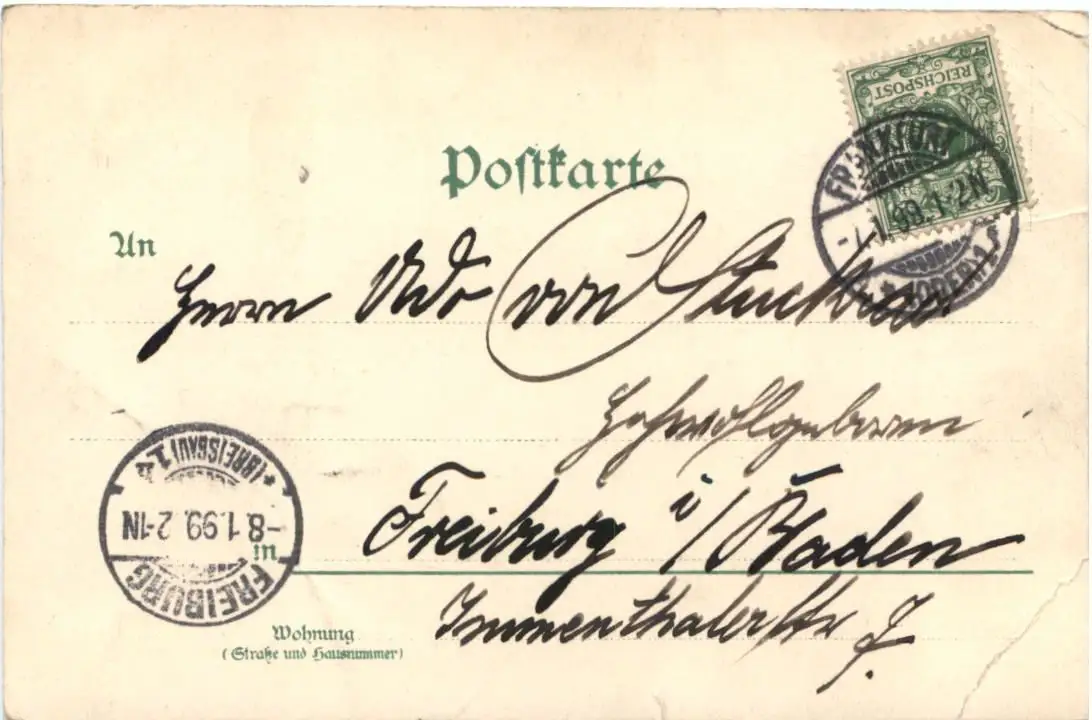 REICHSPOST
Postkarte
FRANKFURT
-7.1.99.1-2N
* (ODER) 1.
An
Herrn Udo von Stuckrad
Hochwohlgeboren
* (BREISGAU) 1.
-8.1.99. 2-1N
FREIBURG
in
Freiburg i/Baden
Immenthalerstr 7.
Wohnung
(Straße und Hausnummer)